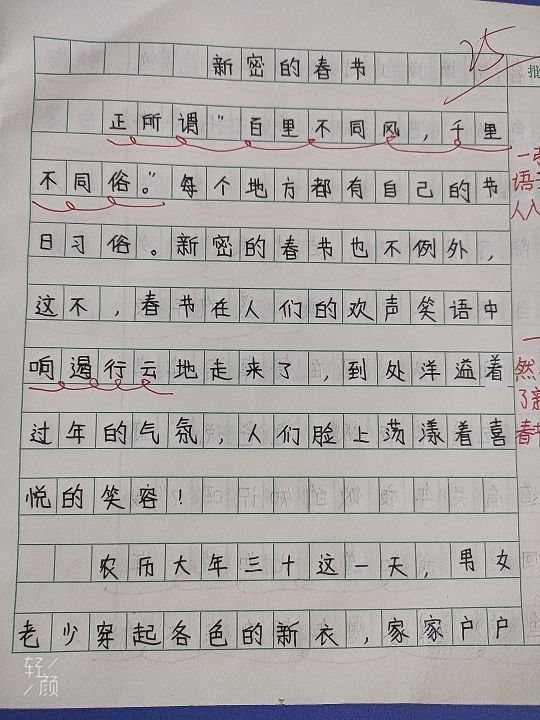 新密的春节
25
批
正所谓"百里不同风，千里
不同俗。"每个地方都有自己的节
日习俗。新密的春节也不例外，
这不，春节在人们的欢声笑语中
响遏行云地走来了，到处洋溢着
过年的气氛，人们脸上荡漾着喜
悦的笑容！
农历大年三十这一天，男女
老少穿起各色的新衣，家家户户
一
语
人入
一
然
了新
春节
轻颜